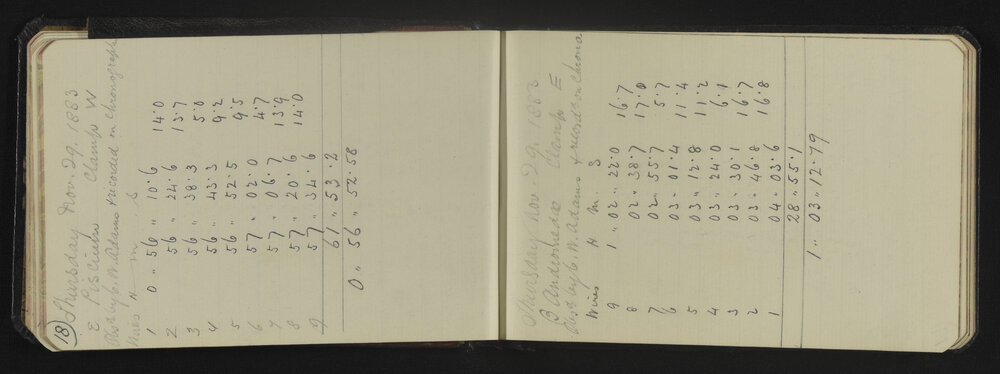 18 Thursday Nov. 29. 1883
ε Piscium Clamp W
Obs by C. W. Adams & recorded on Chronograph
Wires H m S
1 0 " 56 " 10.6 14.0
2 56 " 24.6 13.7
3 56 " 38.3 5.0
4 56 " 43.3 9.2
5 56 " 52.5 9.5
6 57 " 02.0 4.7
7 57 " 06.7 13.9
8 57 " 20.6 14.0
9 57 " 34.6
61 " 53.2
0 " 56 " 52.58
Thursday Nov. 29. 1883
β Andromedæ Clamp E
Obs by C. W. Adams & record on Chrono
Wires H m S
9 1 " 02 " 22.0 16.7
8 02 " 38.7 17.0
7 02 " 55.7 5.7
6 03 " 01.4 11.4
5 03 " 12.8 11.2
4 03 " 24.0 6.1
3 03 " 30.1 16.7
2 03 " 46.8 16.8
1 04 " 03.6
28 " 55.1
1 " 03 " 12.79